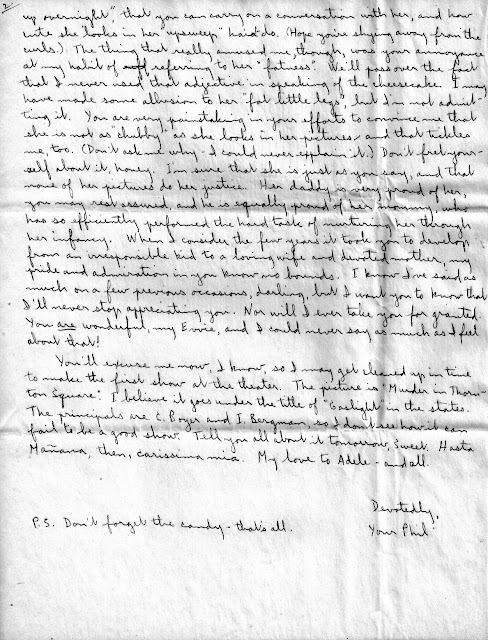 2.
up overnight" that you can carry on a conversation with her, and how
cute she looks in her "upsweep" hair-do. (Hope you're shying away from the
curls). The thing that really amused me, though, was your annoyance
at my habit of referring to her "fatness". We'll pass over the fact
that I never used that adjective in speaking of the cheesecake. I may
have made some allusion to her "fat little legs", but I'm not admit-
ting it. You are very painstaking in your efforts to convince me that
she is not as "chubby" as she looks in her pictures - and that tickles
me, too. (Don't ask me why - I could never explain it.) Don't fret your-
self about it, honey. I'm sure that she is just as you say, and that
none of her pictures do her justice. Her daddy is very proud of her,
you may rest assured, and he is equally proud of her mommy, who
has so efficiently performed the hard task of nurturing her through
her infancy. When I consider the few years it took you to develop
from an irresponsible kid to a loving wife and devoted mother, my
pride and admiration in you know no bounds. I know I've said as
much on a few previous occasions, darling, but I want you to know that
I'll never stop appreciating you. Nor will I ever take you for granted.
You are wonderful, my Evvie, and I could never say as much as I feel
about that!
You'll excuse me now, I know, so I may get cleaned up in time
to make the first show at the theater. The picture is "Murder in Thorn-
ton Square". I believe it goes under the title of "Gaslight" in the states.
The principals are C. Boyer and I. Bergman, so I don't see how it can
fail to be a good show. Tell you all about it tomorrow, Sweet. Hasta
Mañana, then, carissima mia. My love to Adele - and all.
Devotedly,
Your Phil
P.S. Don't forget the candy - that's all.